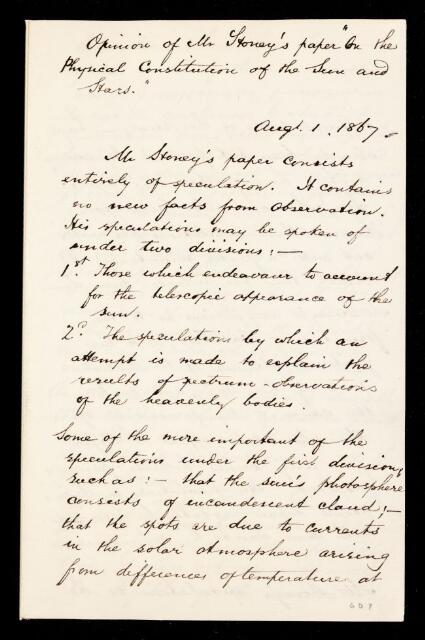 Opinion of Mr Stoney's paper "On the
Physical Constitution of the Sun and
Stars."
Augt. 1, 1867.
Mr Stoney's paper consists
entirely of speculation. It contains
no new facts from observation.
His speculations may be spoken of
under two divisions:—
1st. Those which endeavour to account
for the telescopic appearance of the
sun.
2d. The speculations by which an
attempt is made to explain the
results of spectrum-observations
of the heavenly bodies.
Some of the more important of the
speculations under the first division,
such as:— that the sun's photosphere
consists of incandescent cloud;—
that the spots are due to currents
in the solar atmosphere arising
from differences of temperature at